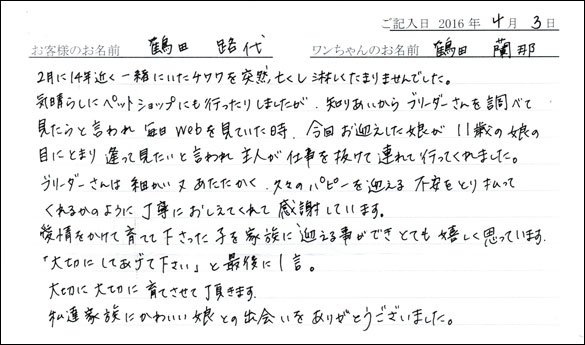 ご記入日 2016年 4月 3日
お客様のお名前 鶴田 路代 ワンちゃんのお名前 鶴田 蘭那
2月に14年近く一緒にいたチワワを突然亡くし淋しくたまりませんでした。
気晴らしにペットショップにも行ったりしましたが、知りあいからブリーダーさんを調べて
見たらと言われ毎日Webを見ていた時、今回お迎えした娘が11歳の娘の
目にとまり逢って見たいと言われ主人が仕事を抜けて連れて行ってくれました。
ブリーダーさんは細かい又あたたかく、久々のパピーを迎える不安をとり払って
くれるかのように丁寧におしえてくれて感謝しています。
愛情をかけて育てて下さった子を家族に迎える事ができとても嬉しく思っています。
「大切にしてあげて下さい」と最後に1言。
大切に大切に育てさせて頂きます。
私達家族にかわいい娘との出会いをありがとうございました。